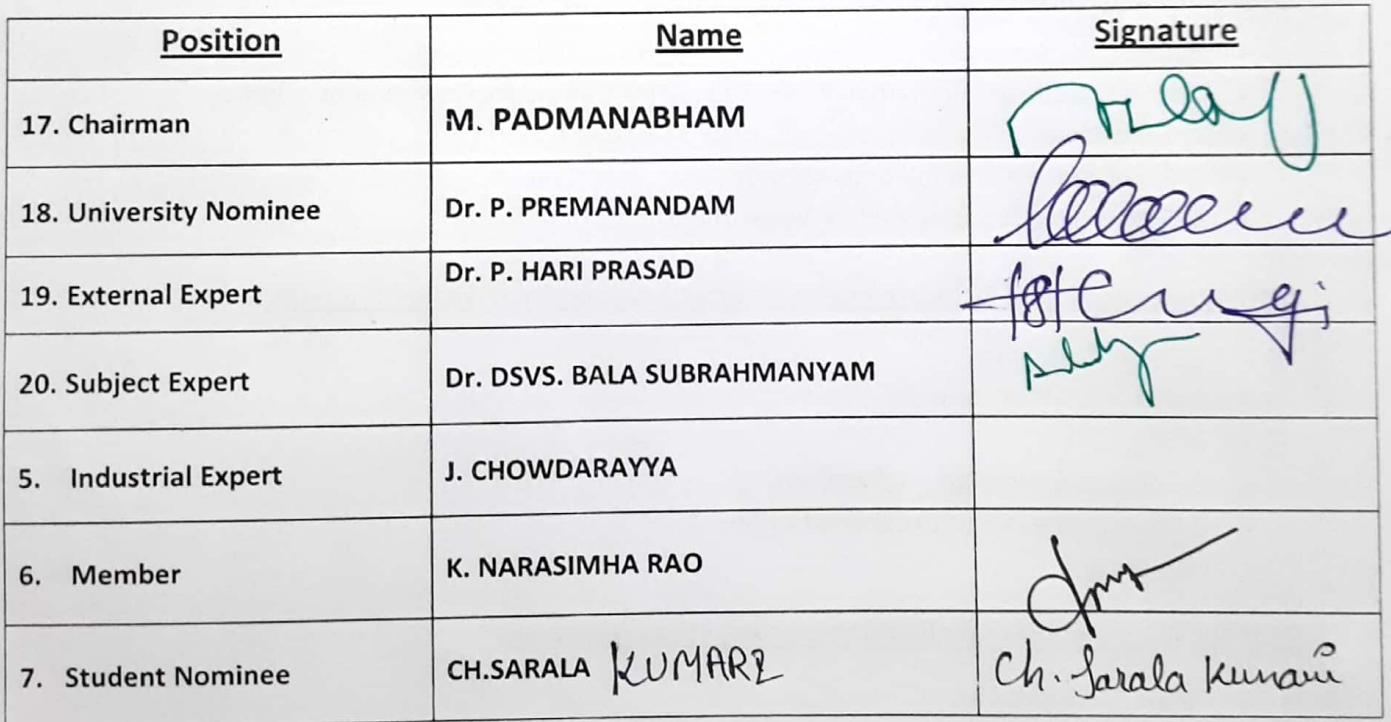 Position Name Signature
17. Chairman M. PADMANABHAM
18. University Nominee Dr. P. PREMANANDAM
19. External Expert Dr. P. HARI PRASAD
20. Subject Expert Dr. DSVS. BALA SUBRAHMANYAM
5. Industrial Expert J. CHOWDARAYYA
6. Member K. NARASIMHA RAO
7. Student Nominee CH.SARALA KUMARI Ch. Sarala Kumari